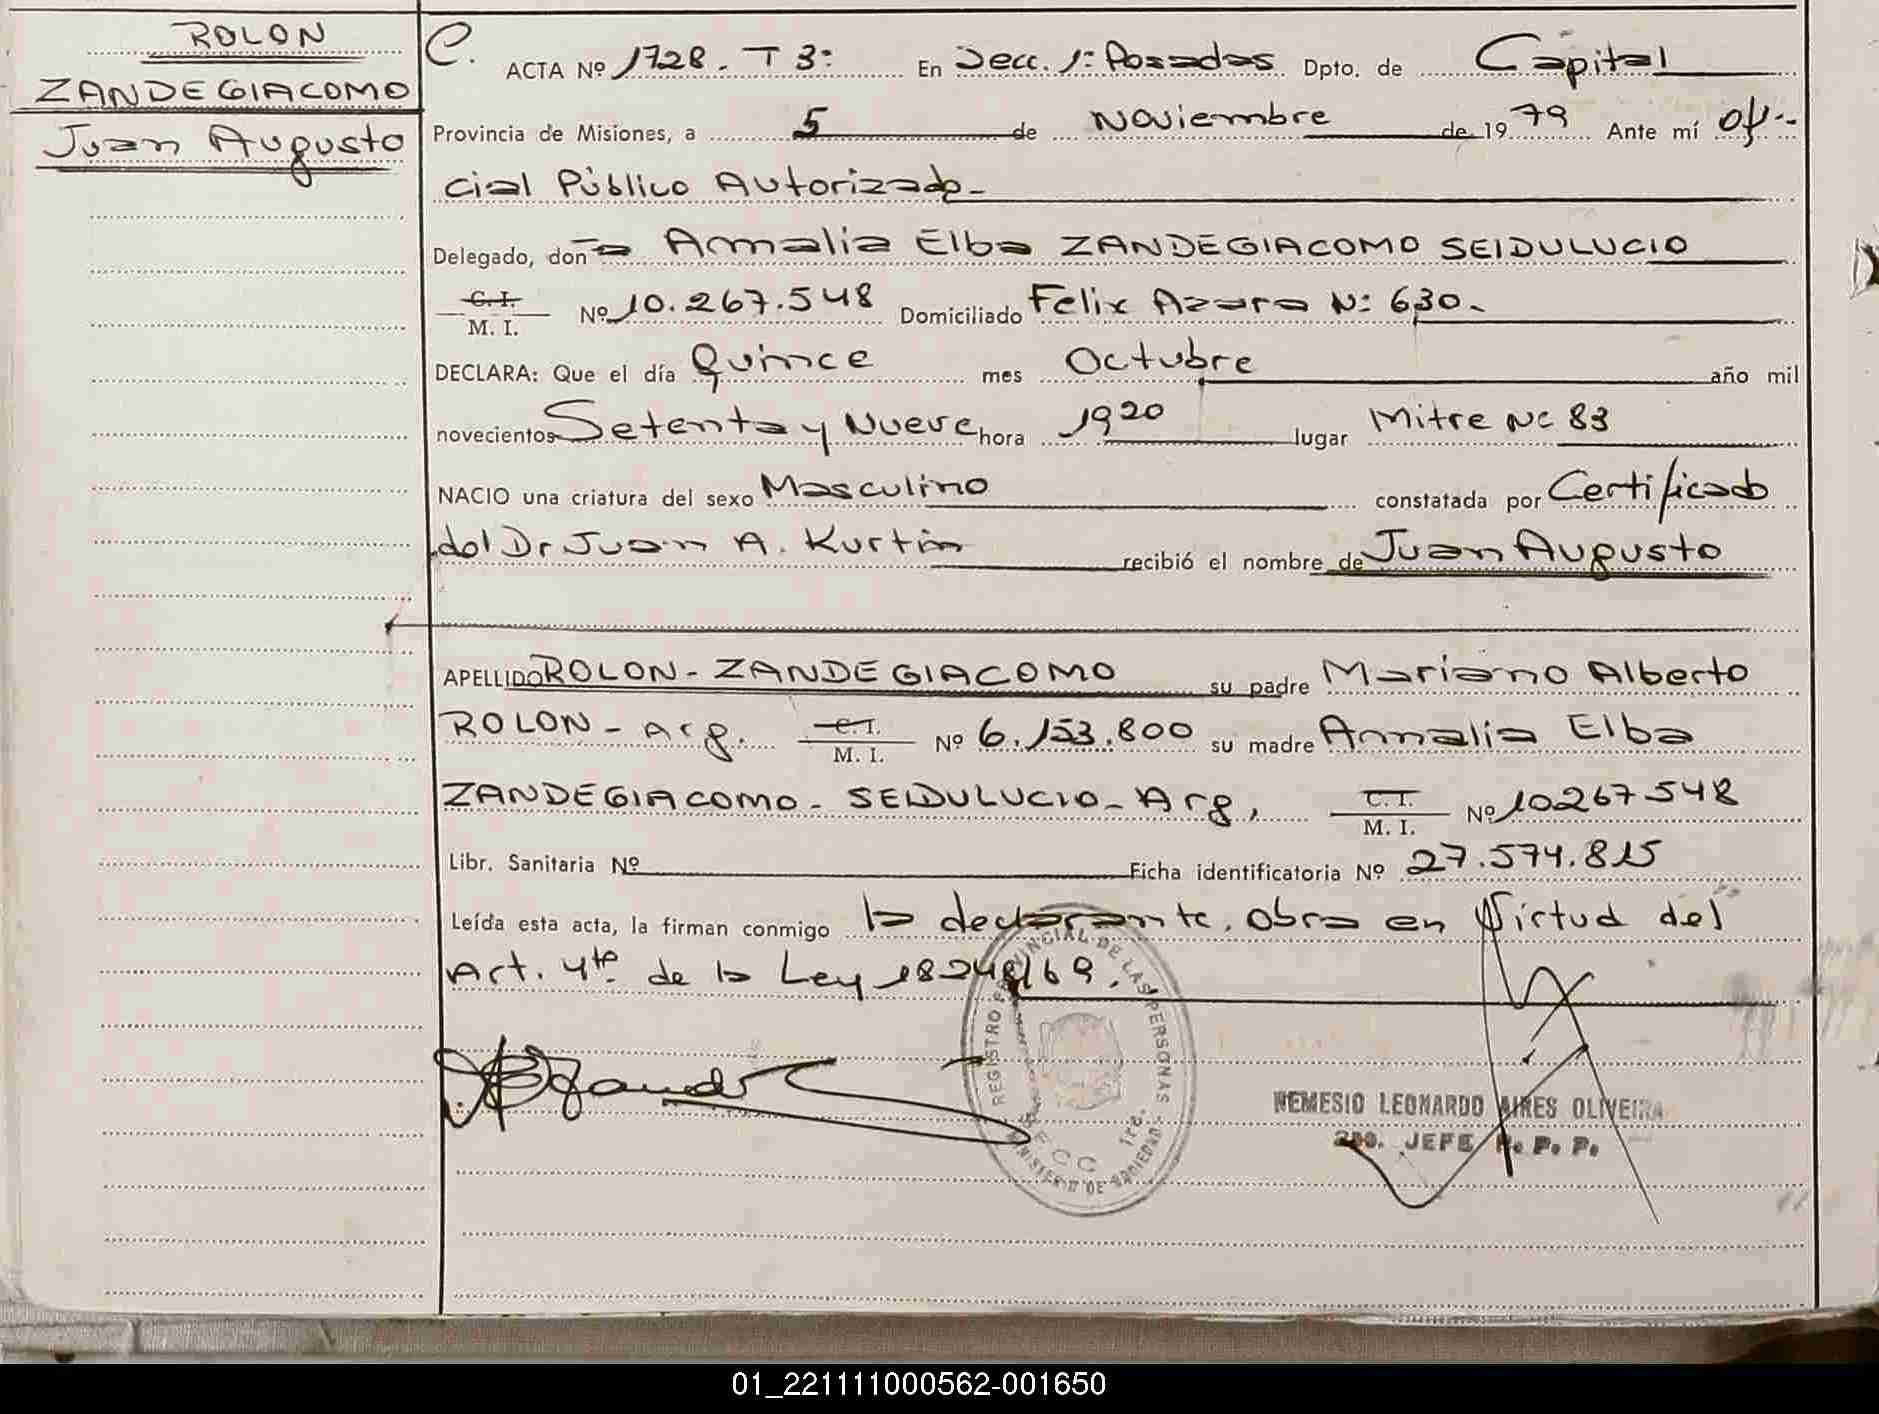 ROLON
ZANDEGIACOMO
Juan Augusto
C. ACTA Nº 1728. T 3: En Secc. 1: Posadas Dpto. de Capital
Provincia de Misiones, a 5 de Noviembre de 1979 Ante mí Ofi-
cial Público Autorizado-
Delegado, doña Annalia Elba ZANDEGIACOMO SEIDULUCIO
C. I.
M. I. Nº 10.267.548 Domiciliado Felix Azara N: 630.
DECLARA: Que el día Quince mes Octubre año mil
novecientos Setenta y Nueve hora 1920 lugar Mitre Nº 83
NACIO una criatura del sexo Masculino constatada por Certificado
del Dr Juan A. Kurtin recibió el nombre de Juan Augusto
APELLIDO ROLON - ZANDEGIACOMO su padre Mariano Alberto
ROLON - Arg. C. I.
M. I. Nº 6.153.800 su madre Annalia Elba
ZANDEGIACOMO - SEIDULUCIO - Arg. C. I.
M. I. Nº 10267548
Libr. Sanitaria Nº Ficha identificatoria Nº 27.574.815
Leída esta acta, la firman conmigo la declarante. Obra en Virtud del
Art. 4to de la Ley 18248/69.
REGISTRO PROVINCIAL DE LAS PERSONAS
1ra.
NEMESIO LEONARDO AIRES OLIVEIRA
2do. JEFE R. P. P.
01_221111000562-001650